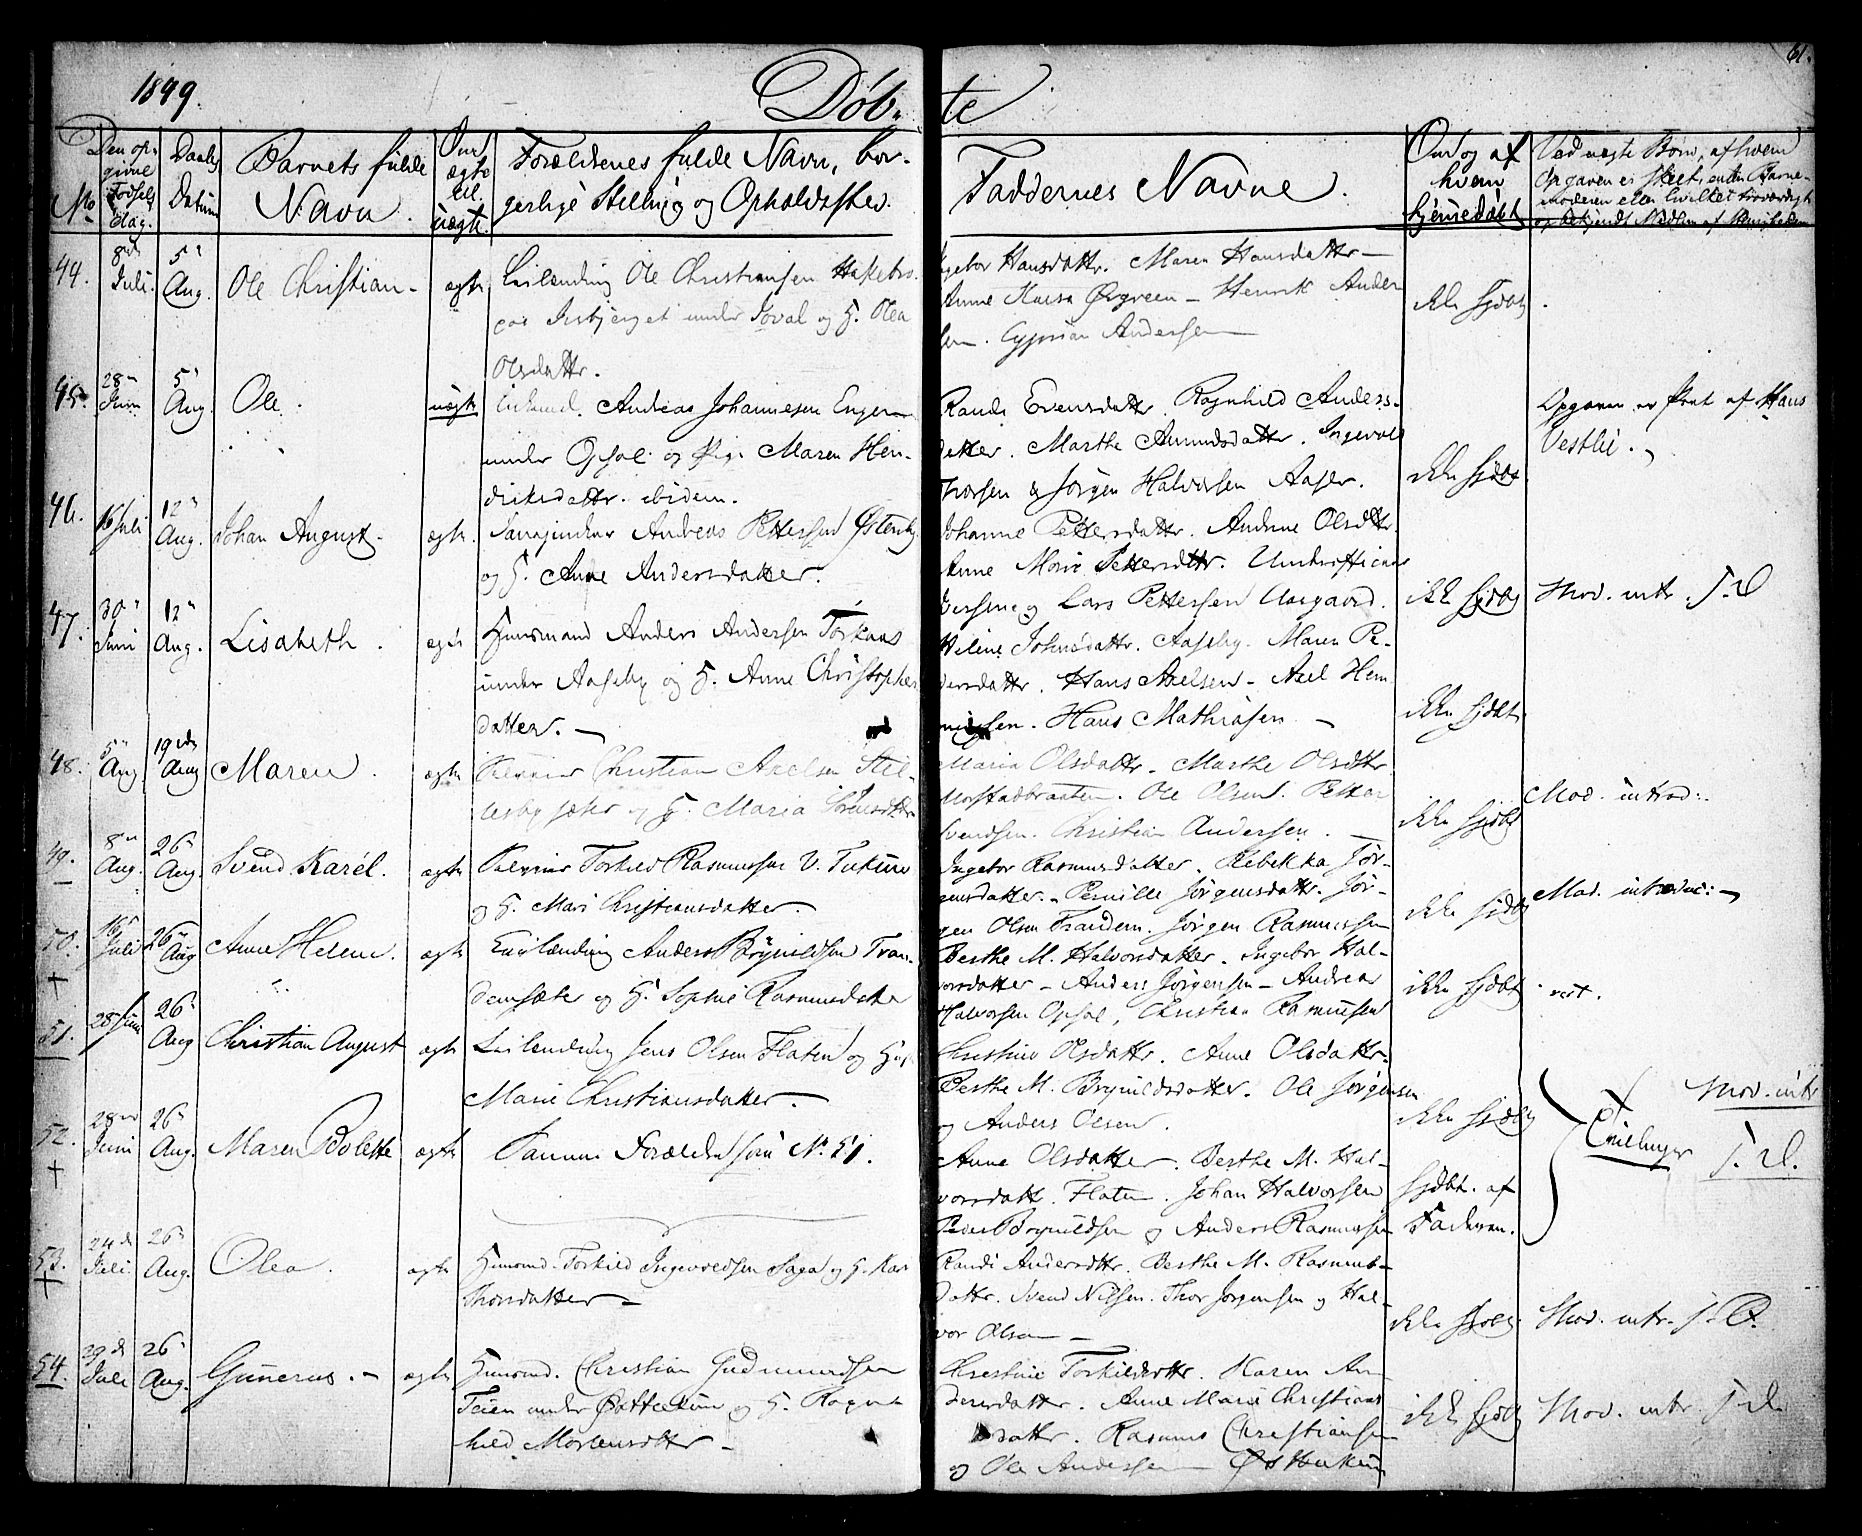 1849. Døb„ te 61.
No
Den op-
givne
Fødsels
dag.
Daabs
Datum
Barnets fulde
Navn.
Om
ægte
el.
uægte.
Forældrenes fulde Navn, bor-
gerlige Stilling og Opholdssted.
Faddernes Navne.
Om og af
hvem
hjemmedøbt
Ved uægte Børn, af hvem
Opgaven er skeet, enten Barne-
moderen eller hvilket troværdigt
og bekjendt Medlem af Menigheden
44. 8de Juli. 5te Aug. Ole Christian - ægte
Leilænding Ole Christiansen Hakebro-
under Joval og H. Olea
Olsdattr.
Ingebor Hansdattr. Maren Hansdattr -
Anne Karea Ørgreen - Henrik Ander
sen. Cyprian Andersen
ikke hjdbt
45. 28de Juni 5te Aug. Ole. uægte
Andreas Johannesen Enger
under Opsal og Pige Maren Hen-
driksdattr. ibidem.
Randi Evensdattr. Ragnhild Anders-
datter. Marthe Amundsdatter. Ingevold
Thorsen & Jörgen Halvorsen Aaser.
ikke hjdbt
Opgaven er skeet af Hans
Vestlie.
46. 16 Juli 12te Aug. Johan August. ægte.
Andreas Pettersen Østenby
og H. Anne Andersdatter.
Johanne Pettersdattr. Andrine Olsdttr.
Anne Marie Pettersdttr.
Iversen og Lars Pettersen Aasgaard.
ikke hjdbt
Mod. intr. J. D
47. 30te Juni 12te Aug. Lisabeth. ægte
Huusmand Anders Andersen Torkaas
under Aaseby og H. Anne Christophers
datter. -
Helene Johnsdattr. Aaseby. Maren Pe-
dersdattr. Hans Axelsen - Axel Hem
mingsen. Hans Mathiasen -
ikke hjdbt.
48. 5te Aug. 19de Aug Maren. ægte
Selveier Christian Axelsen Stil-
lesbysæter og H. Maria Svensdttr
Maria Olsdattr. Marthe Olsdttr
Mostadbraaten. Ole Olsen. Petter
Svendsen. Christian Andersen. -
ikke hjdbt
Mod. introd:.
49. 8de Aug. 26te Aug. Svend Karél. ægte
Selveier Torkild Rasmussen V. Tukun
og H. Mari Christiansdatter.
Ingebor Rasmusdatter. Rebekka Jör-
gensdatter. Pernille Jörgensdattr. Jör-
gen Olsen Trandem. Jörgen Rasmussen
ikke hjdbt
Mod. introduc:.
50. 16de Juli 26te Aug Anne Helene. ægte
Leilænding Anders Brynildsen Tran-
demsæter og H. Sophie Rasmusdatter
Berthe M. Halvorsdatter. Ingebor Hal-
vorsdatter - Anders Jörgensen - Andreas
Halvorsen Opsal, Christian Rasmussen
ikke hjdbt
51. 28 Juni 26te Aug Christian August ægte
Leilænding Jens Olsen Flaten og H.
Marie Christiansdatter. -
Christine Olsdattr. Anne Olsdattr.
Berthe M. Brynildsdatter. Ole Jörgensen
og Anders Olsen.
ikke hjdbt
Tvillinger
Mod. intr
J. D.
52. 28de Juni 26te Aug. Maren Bolette ægte
Samme Forældre som No 51.
Anne Olsdatter. Berthe M. Hal-
vorsdatt. Flaten. Johan Halvorsen
Peder Brynildsen og Anders Rasmussen
hjdbt. af
Faderen.
53. 24de Juli. 26te Aug. Olea. ægte
Huusmd. Torkild Ingevoldsen Saga og H. Kari
Thorsdatter -
Randi Andersdttr. Berthe M. Rasmus-
dattr. Svend Nilsen. Thor Jörgensen og Hal-
vor Olsen -
ikke hjdbt
Mod. intr. J. D.
54. 29de Juli 26te Aug. Gunerus. - ægte
Huusmd. Christian Gudmundsen
Teien under Østtukun og H. Ragn-
hild Mortensdttr -
Christine Torkildsdttr. Karen An-
dersdatter. Anne Marie Christians
dattr. Rasmus Christiansen
og Ole Andersen - Østtukun
ikke hjdbt
Mod. intr. J. D.